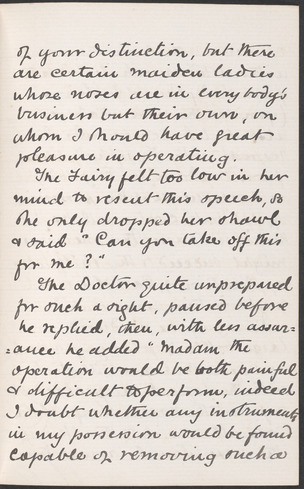 of your distinction, but there
are certain maiden ladies
whose noses are in everybody's
business but their own, on
whom I should have great
pleasure in operating.
The Fairy felt too low in her
mind to resent this speech, so
she only dropped her shawl
& said "Can you take off this
for me?"
The Doctor quite unprepared
for such a sight, paused before
he replied, then, with less assur-
=ance he added "Madam the
operation would be both painful
& difficult to perform, indeed
I doubt whether any instruments
in my possession would be found
capable of removing such a